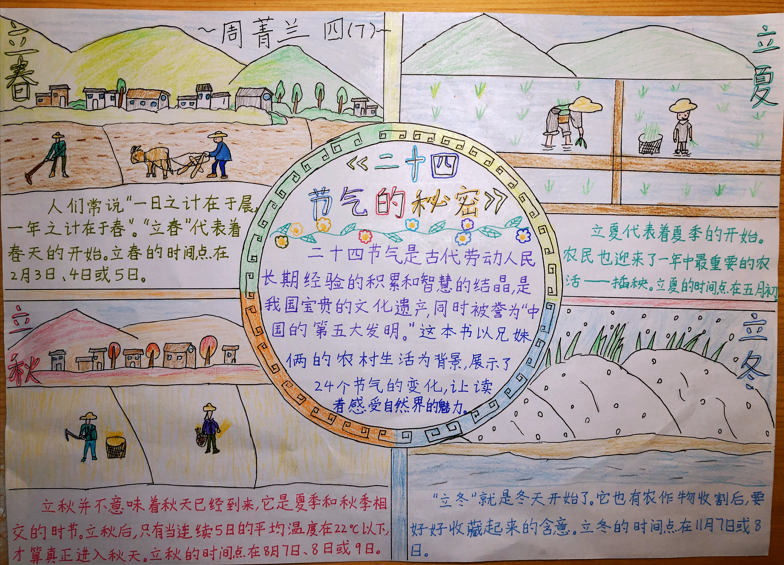 立春
~周菁兰 四(7)~
立夏
《二十四
节气的秘密》
二十四节气是古代劳动人民
长期经验的积累和智慧的结晶,是
我国宝贵的文化遗产,同时被誉为“中
国的第五大发明。”这本书以兄妹
俩的农村生活为背景,展示了
24个节气的变化,让读
者感受自然界的魅力。
人们常说“一日之计在于晨,
一年之计在于春”。“立春”代表着
春天的开始。立春的时间点在
2月3日、4日或5日。
立夏代表着夏季的开始。
农民也迎来了一年中最重要的农
活——插秧。立夏的时间点在五月初
立秋
立秋并不意味着秋天已经到来,它是夏季和秋季相
交的时节。立秋后,只有当连续5日的平均温度在22℃以下,
才算真正进入秋天。立秋的时间点在8月7日、8日或9日。
立冬
“立冬”就是冬天开始了。它也有农作物收割后,要
好好收藏起来的含意。立冬的时间点在11月7日或8
日。